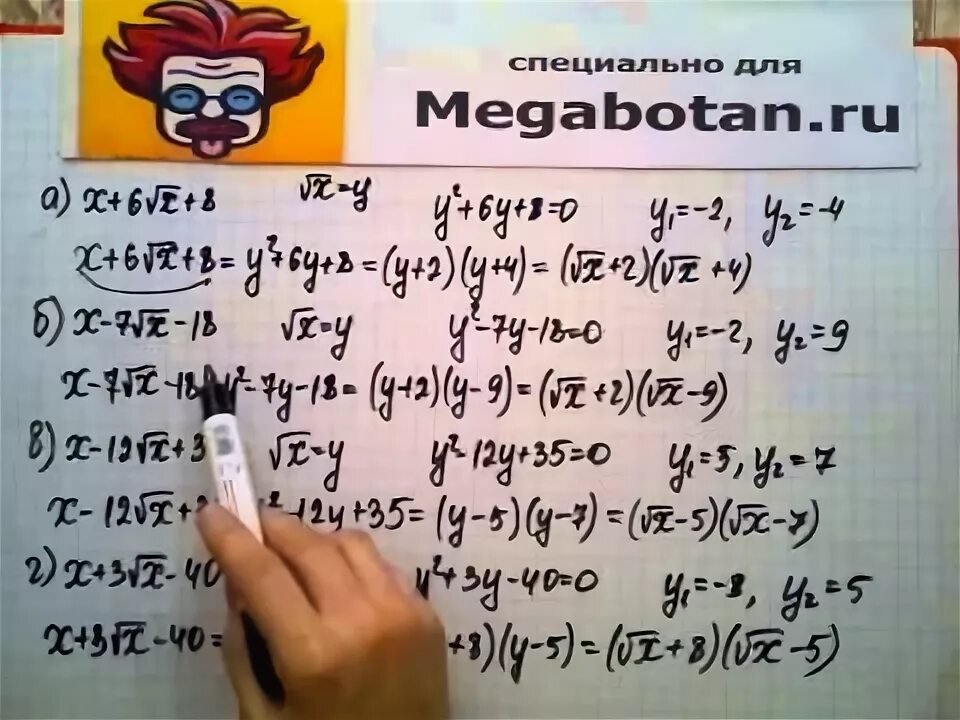 специально для
Megabotan.ru
а) x+6√x+8 √x=y y²+6y+8=0 y₁=-2, y₂=-4
x+6√x+8 = y²+6y+8 = (y+2)(y+4) = (√x+2)(√x+4)
б) x-7√x-18 √x=y y²-7y-18=0 y₁=-2, y₂=9
x-7√x-18 y²-7y-18 = (y+2)(y-9) = (√x+2)(√x-9)
в) x-12√x+3 √x=y y²-12y+35=0 y₁=5, y₂=7
x-12√x+ ²-12y+35 = (y-5)(y-7) = (√x-5)(√x-7)
г) x+3√x-40 y²+3y-40=0 y₁=-8, y₂=5
x+3√x-40= +8)(y-5) = (√x+8)(√x-5)